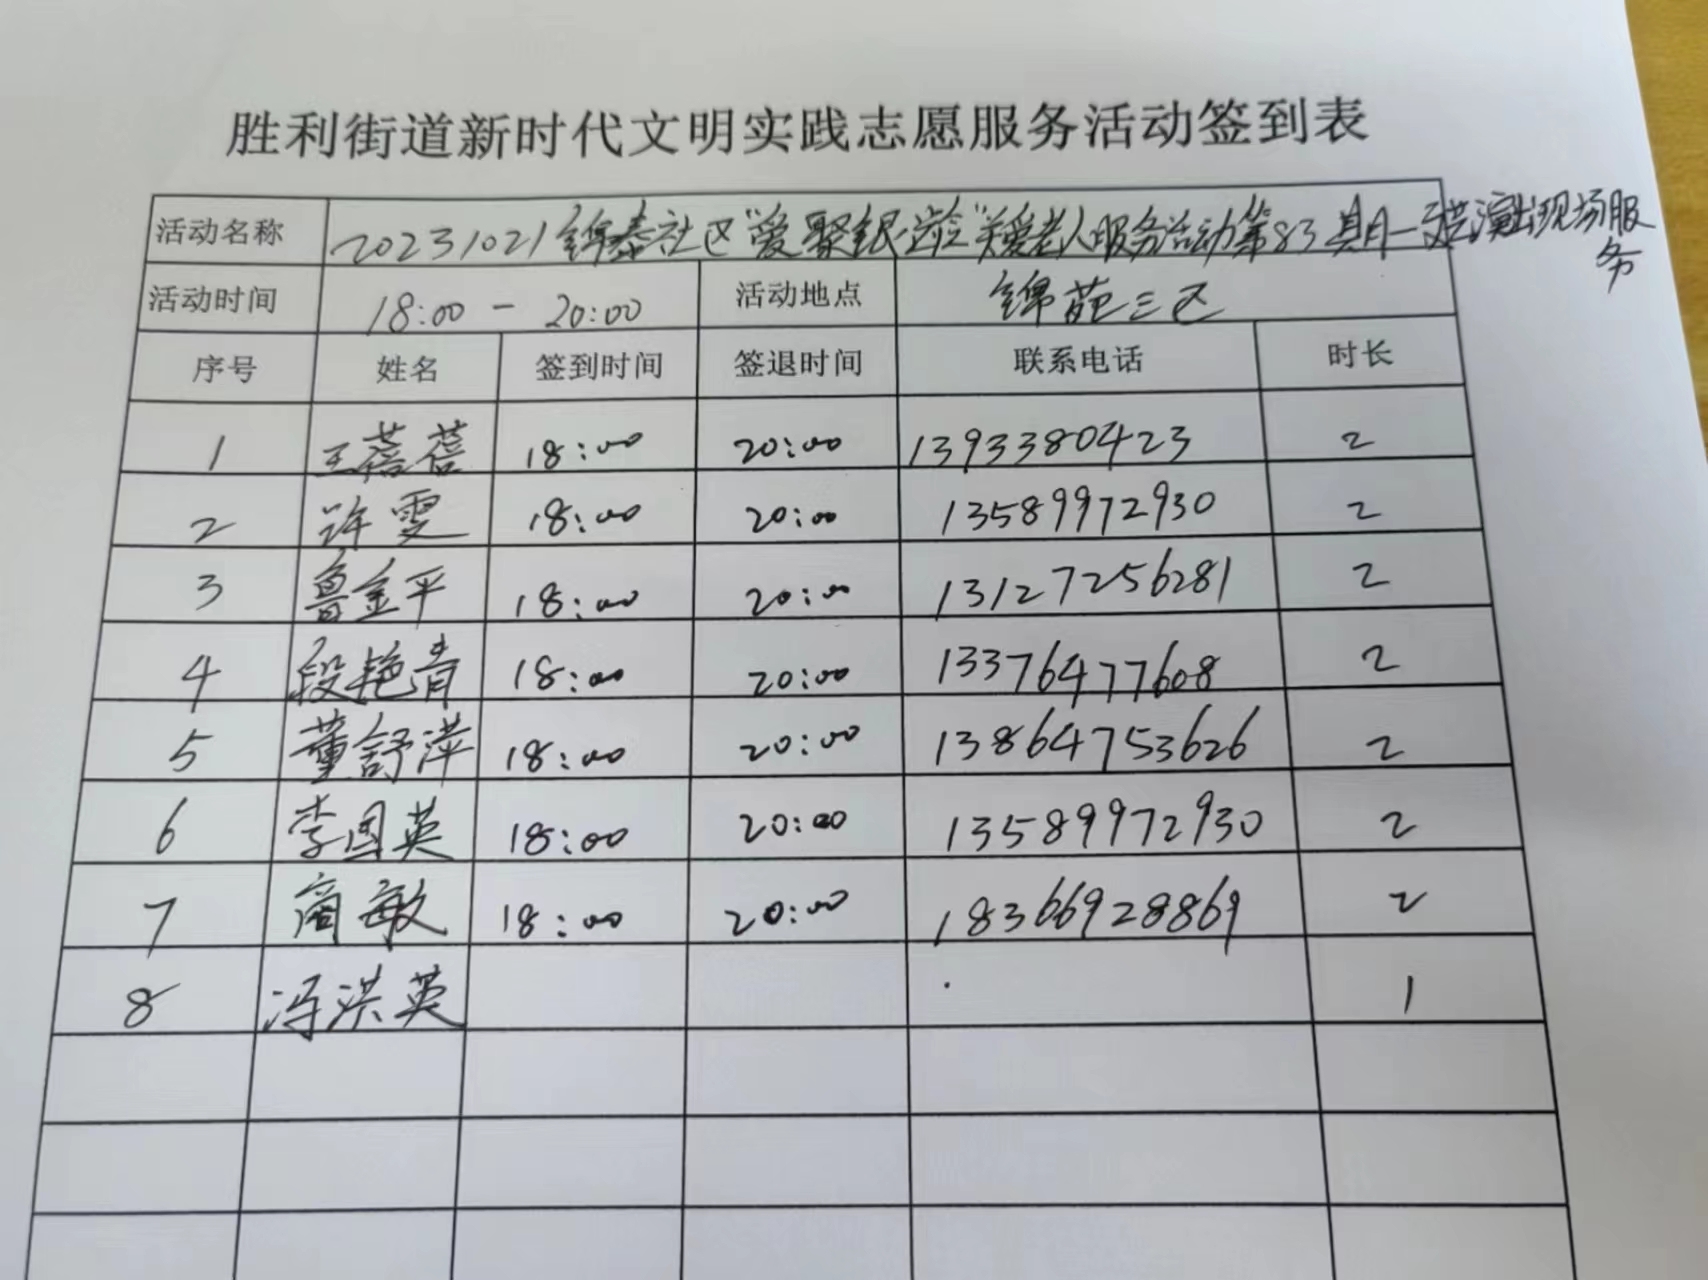 胜利街道新时代文明实践志愿服务活动签到表
活动名称 20231021锦泰社区"爱聚银龄"关爱老人服务活动第83期—演出现场服
务
活动时间 18:00 - 20:00 活动地点 锦苑三区
序号 姓名 签到时间 签退时间 联系电话 时长
1 王蓓蓓 18:00 20:00 1393380423 2
2 许雯 18:00 20:00 13589972930 2
3 鲁金平 18:00 20:00 13127256281 2
4 段艳青 18:00 20:00 13376477608 2
5 董舒萍 18:00 20:00 13864753626 2
6 李国英 18:00 20:00 13589972930 2
7 商敏 18:00 20:00 18366928869 2
8 冯洪英 1